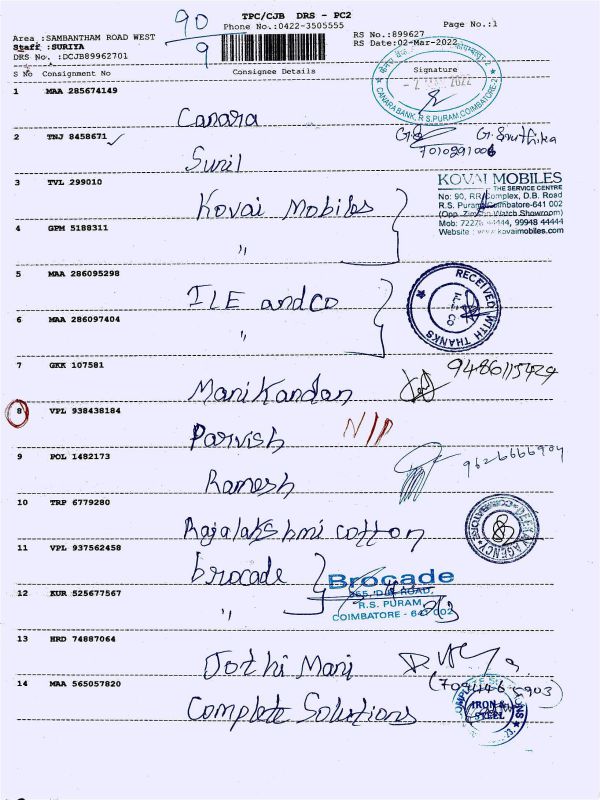 90
9
TPC/CJB DRS - PC2
Phone No.:0422-3505555
Page No.:1
Area :SAMBANTHAM ROAD WEST
Staff :SURIYA
DRS No. :DCJB89962701
RS No.:899627
RS Date:02-Mar-2022
S No Consignment No Consignee Details Signature
CANARA BANK, R S PURAM, COIMBATORE-2
1 MAA 285674149
Canara
2 TNJ 8458671
Sunil
3 TVL 299010
Kovai Mobiles
KOVAI MOBILES
THE SERVICE CENTRE
No: 90, RR Complex, D.B. Road
R.S. Puram, Coimbatore-641 002
(Opp. Watch Showroom)
44444, 99948 44444
Website : www.kovaimobiles.com
4 GPM 5188311
"
5 MAA 286095298
ILE and co
RECEIVED WITH THANKS
6 MAA 286097404
"
7 GKK 107581
Manikandan
8 VPL 938438184
Parvish
9 POL 1482173
Ramesh
10 TRP 6779280
Rajalakshmi cotton
11 VPL 937562458
brocade
Brocade
D.B. ROAD,
R.S. PURAM,
COIMBATORE - 641 002
12 KUR 525677567
"
13 HRD 74887064
Jothi Mani
14 MAA 565057820
Complete Solutions
IRON &
STEEL